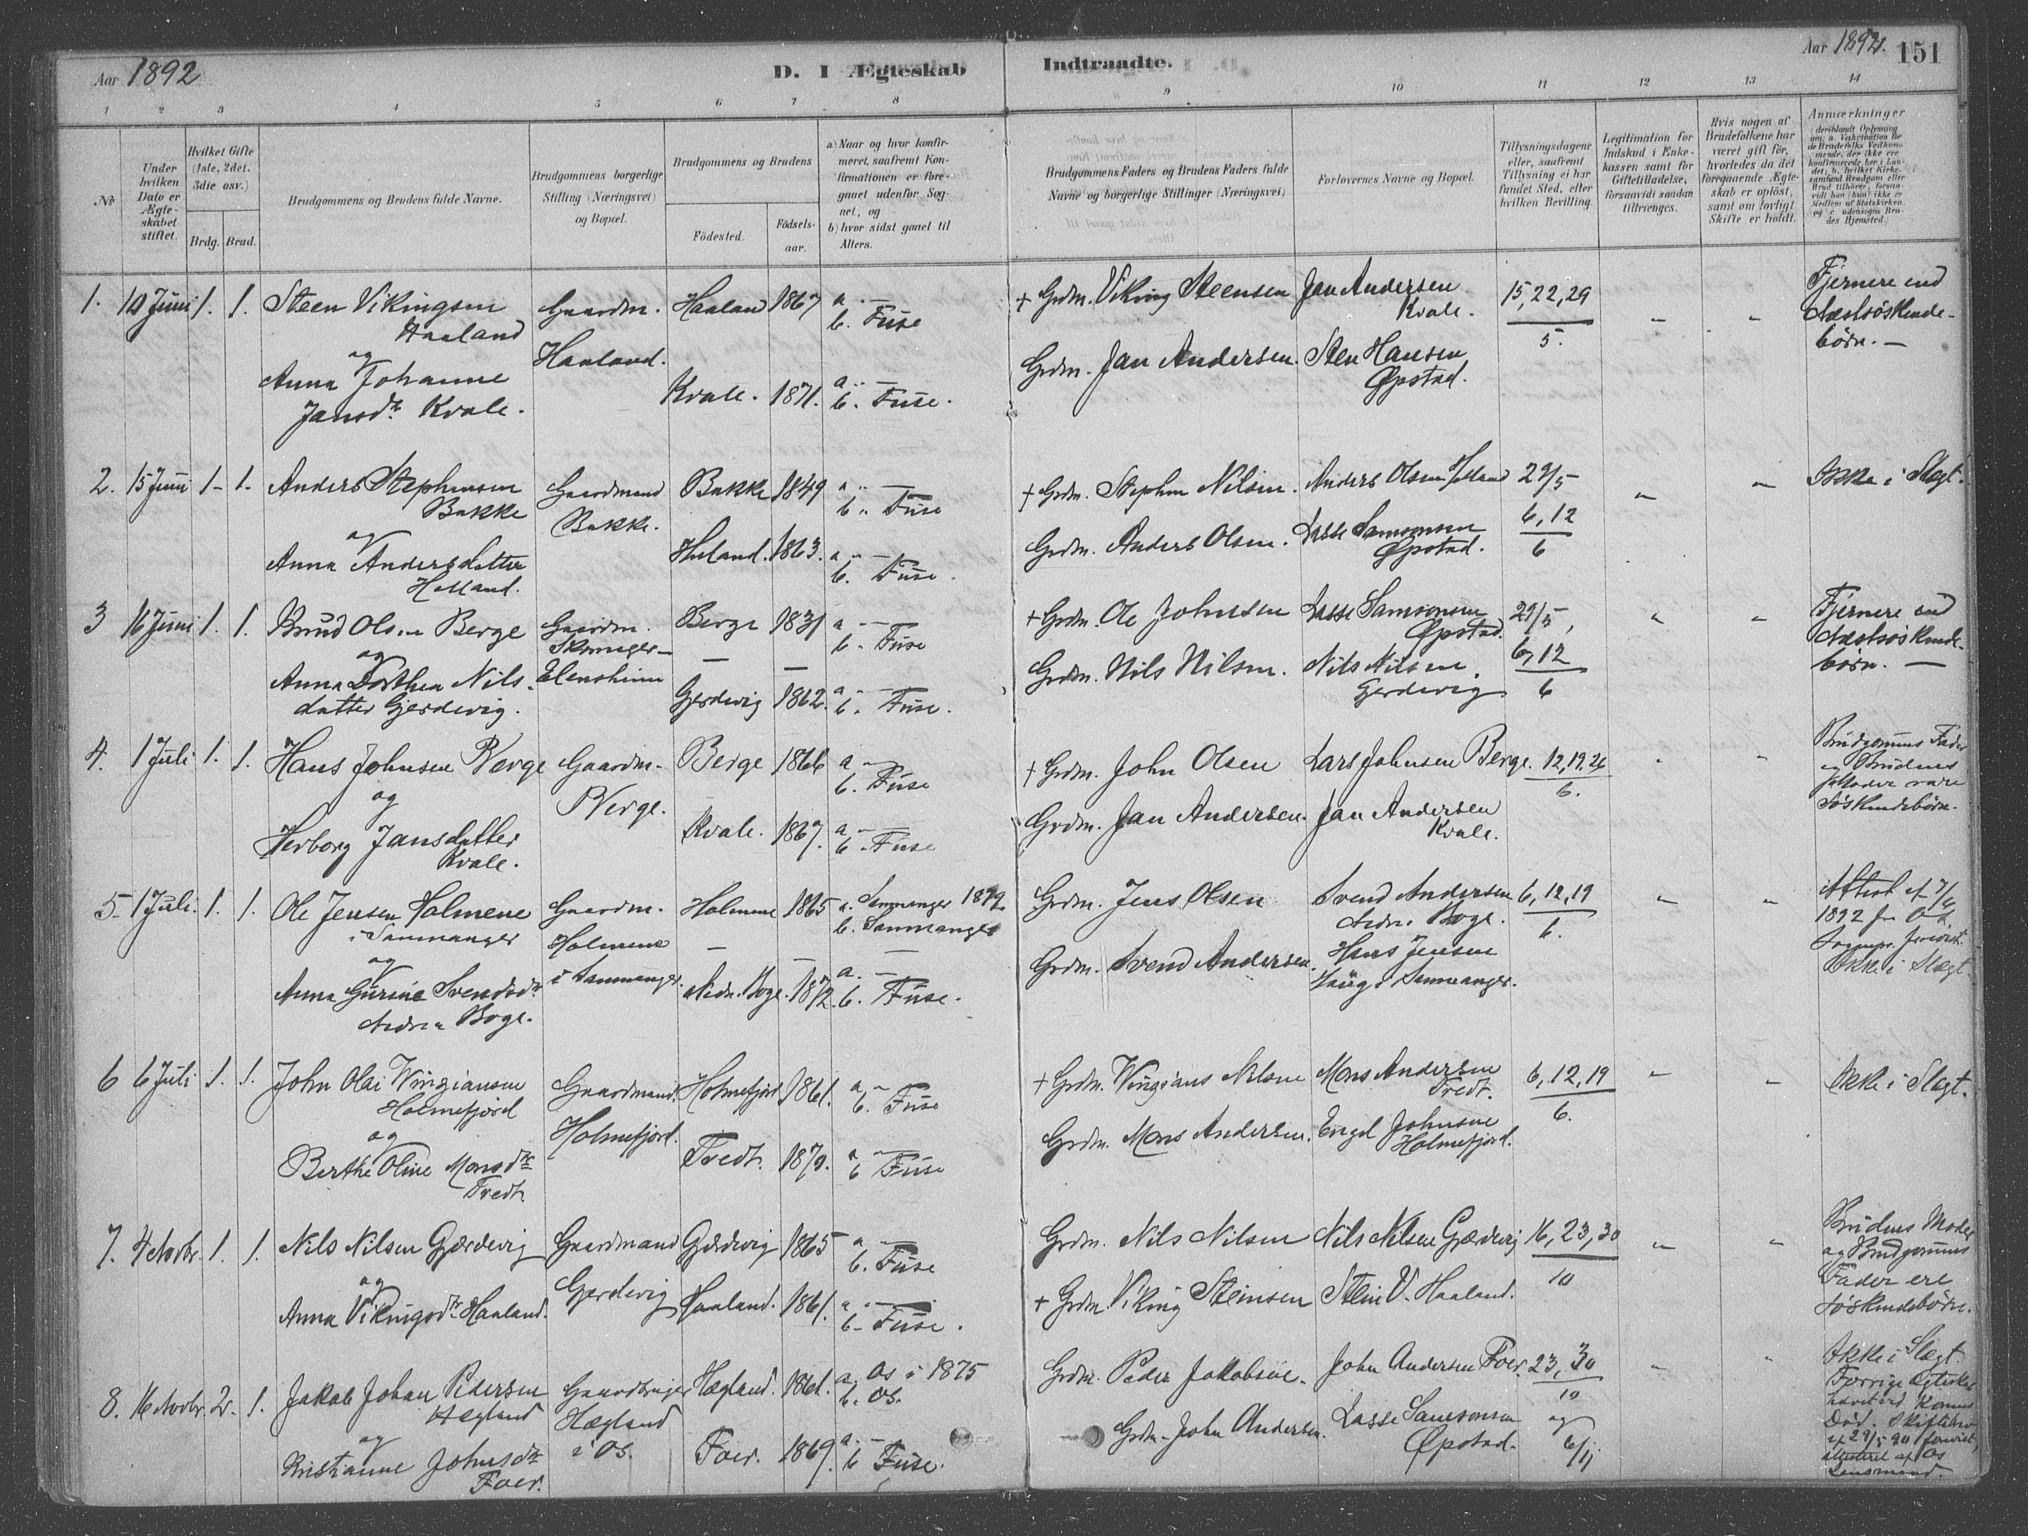 Aar 1892
D. I Ægteskab Indtraadte.
Aar 1892. 151
1 2 3 4 5 6 7 8 9 10 11 12 13 14
No
Under hvilken Dato er Ægteskabet stiftet.
Hvilket Gifte (1ste, 2det, 3die osv.)
Brdg. Brud.
Brudgommens og Brudens fulde Navne.
Brudgommens borgerlige Stilling (Næringsvei) og Bopæl.
Brudgommens og Brudens
Födested.
Födselsaar.
a) Naar og hvor konfirmeret, saafremt Konfirmationen er foregaaet udenfor Sognet, og
b) hvor sidst gaaet til Alters.
Brudgommens Faders og Brudens Faders fulde Navne og borgerlige Stillinger (Næringsvei)
Forlovernes Navne og Bopæl.
Tillysningsdagene eller, saafremt Tillysning ei har fundet Sted, efter hvilken Bevilling.
Legitimation for Indskud i Enkekassen samt for Giftetilladelse, forsaavidt saadan tiltrænges.
Hvis nogen af Brudefolkene har været gift før, hvorledes da det foregaaende Ægteskab er opløst, samt om lovligt Skifte er holdt.
Anmærkninger
1. 10 Juni 1. 1. Steen Vikingsen Haaland
og
Anna Johanne Jansdtr Kvale.
Gaardm. Haaland.
Haaland 1867 a. — b. Fuse
Kvale. 1871. a. — b. Fuse.
+ Grdm. Viking Steensen
Grdm. Jan Andersen.
Jan Andersen Kvale.
Sten Hansen Øpstad.
15, 22, 29
5.
Fjernere end Næstsøskendebørn. —
2. 15 Juni 1. 1. Anders Stephensen Bakke
og
Anna Andersdatter Holland.
Gaardmand Bakke.
Bakke 1849 a. — b. Fuse
1863. a. — b. Fuse.
+ Grdm. Stephen Nilsen.
Grdm. Anders Olsen.
Anders Olsen
Lasse Samsonsen Øpstad.
29/5
6, 12
6
Ikke i Slægt.
3 16 Juni 1. 1. Knud Olsen Berge
og
Anna Dorthea Nilsdatter Gjerdevig.
Gaardm. Skomager
Berge 1831 a — b. Fuse
Gjerdevig 1862. a. — b. Fuse.
+ Grdm. Ole Johnsen
Grdm. Nils Nilsen.
Lasse Samsonsen Øpstad.
Nils Nilsen Gerdevig
29/5,
6, 12
6
Fjernere end Næstsøskendebørn. —
4. 1 Juli 1. 1. Hans Johnsen Berge
og
Herborg Jansdatter Kvale.
Gaardm. Berge.
Berge 1866 a — b. Fuse
Kvale. 1867. a — b. Fuse
+ Grdm. John Olsen
Grdm. Jan Andersen.
Lars Johnsen Berge.
Jan Andersen Kvale.
12, 19, 26
6.
Brudgomens Fader og Brudens Moder vare Søskendebørn.
5. 1 Juli. 1. 1. Ole Jensen Holmene i Sammanger
og
Anna Gurine Svendsdtr Nedre Boge.
Gaardm. Holmene i Sammanger.
Holmene 1865 a. Sammanger b. Sammanger
Nedr. Boge. 1872. a. — b. Fuse.
Grdm. Jens Olsen
Grdm. Svend Andersen.
Svend Andersen Nedre Boge.
Hans Jensen Hauge i Sammanger.
6, 12, 19
6.
Attest af
1892 fra
Ikke i Slægt.
6 6 Juli 1. 1. John Olai Wingiansen Holmefjord
og
Berthe Oline Monsdtr Tredt.
Gaardmand. Holmefjord.
Holmefjord 1861. a. — b. Fuse
Tredt. 1870. a — b Fuse
+ Grdm. Wingians Nilsen
Grdm. Mons Andersen.
Mons Andersen Tredt.
Engel Johnsen Holmefjord.
6, 12, 19
6.
Ikke i Slægt.
7. 4 Novbr. 1. 1. Nils Nilsen Gjærdevig
og
Anna Vikingsdtr Haaland.
Gaardmand Gjerdevig
Gjærdevig 1865 a — b. Fuse
Haaland. 1861. a. — b. Fuse.
Grdm. Nils Nilsen
+ Grdm. Viking Steinsen
Nils Nilsen Gjærdevig
Stein V. Haaland.
16, 23, 30
10
Brudens Moder og Brudgomens Fader ere Søskendebørn.
8. 16 Novbr. 2. 1. Jakob Johan Pedersen Hægland
og
Kristianne Johnsdtr Foer.
Gaardbruger Hægland i Os.
Hægland. 1861. a. Os i 1875 b. Os.
Foer. 1869. a. — b Fuse.
Grdm. Peder Jakobsen.
Grdm. John Andersen.
John Andersen Foer.
Lasse Samsonsen Øpstad.
23, 30
10
og
6/11
Ikke i Slægt.
Forrige Ægteskab hævet ved Konens Død. Skiftebrev af 29/5 90 forevist, attesteret af Os Lensmand.